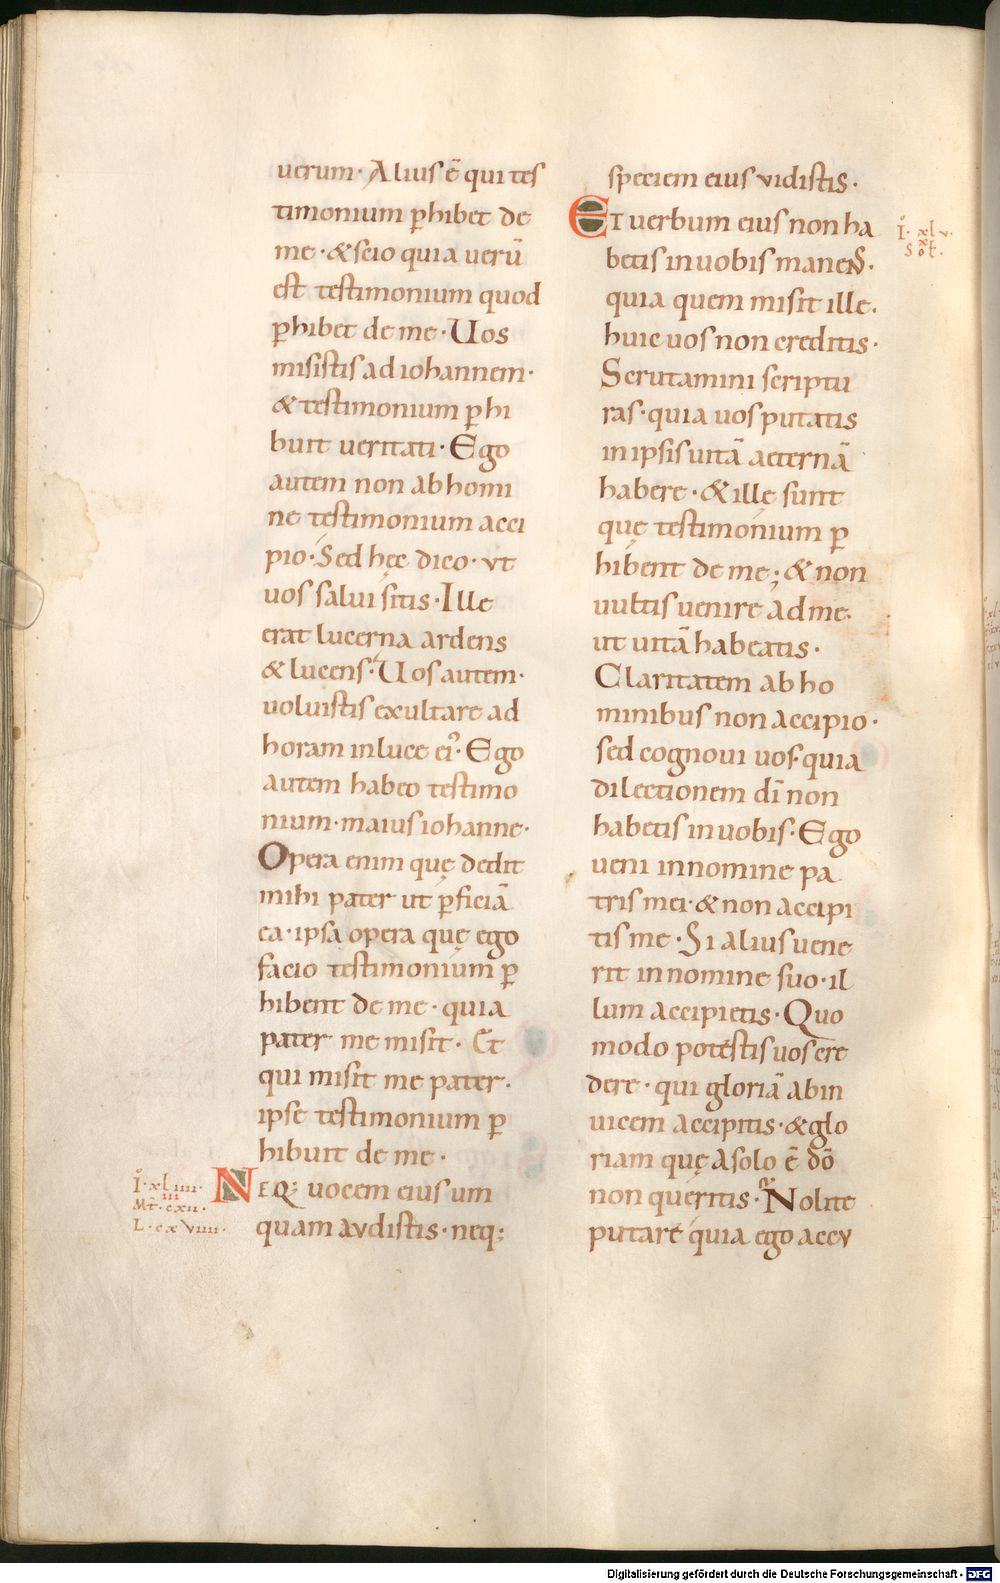 uerum· Alius ē qui tes
timonium ꝑhibet de
me·&scio quia uerū
est testimonium quod
ꝑhibet de me· Uos
misistis ad iohannem·
& testimonium ꝑhi
buit ueritati· Ego
autem non ab homi
ne testimonium acci
pio· Sed hęc dico· vt
uos salui sitis· Ille
erat lucerna ardens
& lucens· Uos autem·
uoluistis exultare ad
horam in luce eiꝰ· Ego
autem habeo testimo
nium· maius iohanne·
Opera enim quę dedit
mihi pater ut ꝑficiā
ea· ipsa opera quę ego
facio testimonium ꝑ
hibent de me· quia
pater me misit· Et
qui misit me pater·
ipse testimonium ꝑ
hibuit de me·
I· xliiii·
iii
Mt̄· cxii·
L· cxviiii·
NEQ; uocem eius um
quam avdistis· neq;
speciem eius vidistis·
Et uerbum eius non ha
I· xlv·
x
Sol·
betis in uobis manens·
quia quem misit ille·
huic uos non creditis·
Scrutamini scriptu
ras· quia uos putatis
in ipsis uitā aeternā
habere· & illę sunt
quę testimonium ꝑ
hibent de me; & non
uultis uenire ad me·
ut uitā habeatis·
Claritatem ab ho
minibus non accipio·
sed cognoui uos· quia
dilectionem dī non
habetis in uobis· Ego
ueni in nomine pa
tris mei· & non accipi
tis me· Si alius uene
rit in nomine suo· il
lum accipietis· Quo
modo potestis uos cre
dere· qui gloriā ab in
uicem accipitis· & glo
riam quę a solo ē dō
non quęritis· Nolite
putare quia ego accv
Digitalisierung gefördert durch die Deutsche Forschungsgemeinschaft - DFG